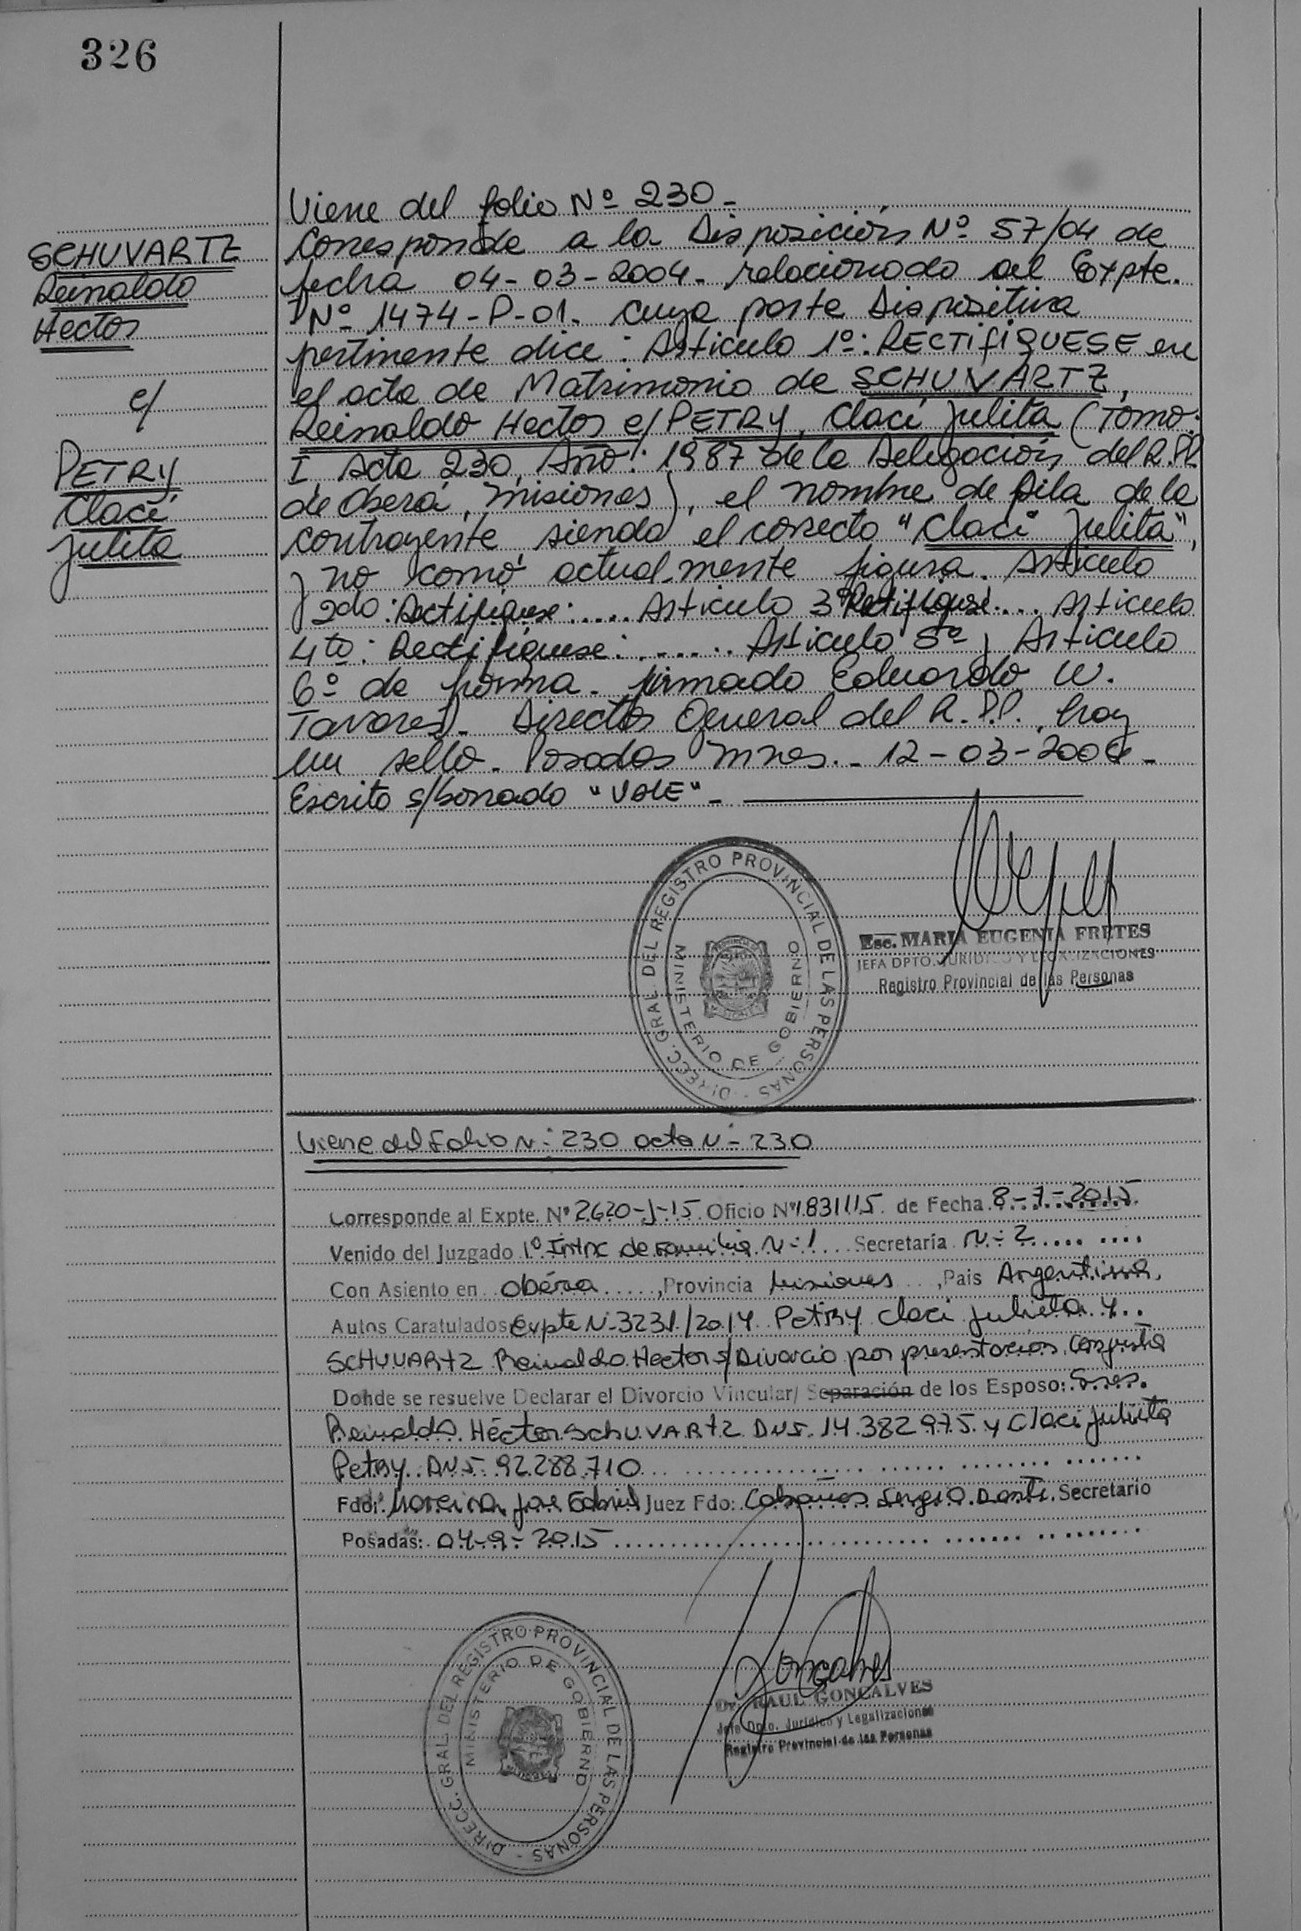 326
Viene del folio Nº 230.-
SCHUVARTZ
Reinaldo
Hector
c/
PETRY
Claci
Julita
Corresponde a la Disposición Nº 57/04 de
fecha 04-03-2004. relacionado al Expte.
Nº 1474-P-01. cuya parte Dispositiva
pertinente dice: Articulo 1º: RECTIFIQUESE en
el acta de Matrimonio de SCHUVARTZ,
Reinaldo Hector c/ PETRY, Claci Julita (Tomo:
I Acta 230, Año: 1987 de la Delegación del R.PP.
de Oberá, Misiones), el nombre de pila de la
contrayente siendo el correcto "Claci Julita",
y no como actualmente figura. Articulo
2do: Rectifiquese: ..... Articulo 3º Rectifiquese .... Articulo
4to: Rectifiquese: ....... Articulo 5º y Articulo
6º de forma. firmado Eduardo W.
Tavares. Director General del R.P.P. hay
un sello. Posadas Mnes. - 12-03-2004 -
Escrito s/borrado "VALE" -
DIRECC. GRAL. DEL REGISTRO PROVINCIAL DE LAS PERSONAS -
MINISTERIO DE GOBIERNO
Esc. MARIA EUGENIA FRETES
JEFA DPTO. JURIDICO Y LEGALIZACIONES
Registro Provincial de las Personas
Viene del Folio Nº 230 acta Nº 230
Corresponde al Expte. Nº 2620-J-15 Oficio Nº 1.831/15 de Fecha 8-7-2015
Venido del Juzgado 1º Inst. de Familia Nº 1 Secretaría Nº 2
Con Asiento en Oberá, Provincia Misiones, País Argentina.
Autos Caratulados Expte Nº 3231/2014 Petry Claci Julieta y
SCHUVARTZ Reinaldo Hector s/ Divorcio por presentacion Conjunta
Donde se resuelve Declarar el Divorcio Vincular/ Separación de los Esposo: Sres.
Reinaldo Héctor SCHUVARTZ DNI. 14.382.975. y Claci Julieta
Petry. DNI. 92.288.710
Fdo: Moreira, Jose Gabriel Juez Fdo: Cabañas Sergio Dante. Secretario
Posadas: 04-9-2015
DIRECC. GRAL. DEL REGISTRO PROVINCIAL DE LAS PERSONAS -
MINISTERIO DE GOBIERNO
Dr. RAUL GONCALVES
Jefe Dpto. Jurídico y Legalizaciones
Registro Provincial de las Personas